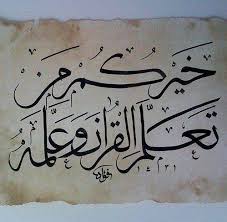 خيركم من
تعلم القرآن وعلمه
١٤٣١